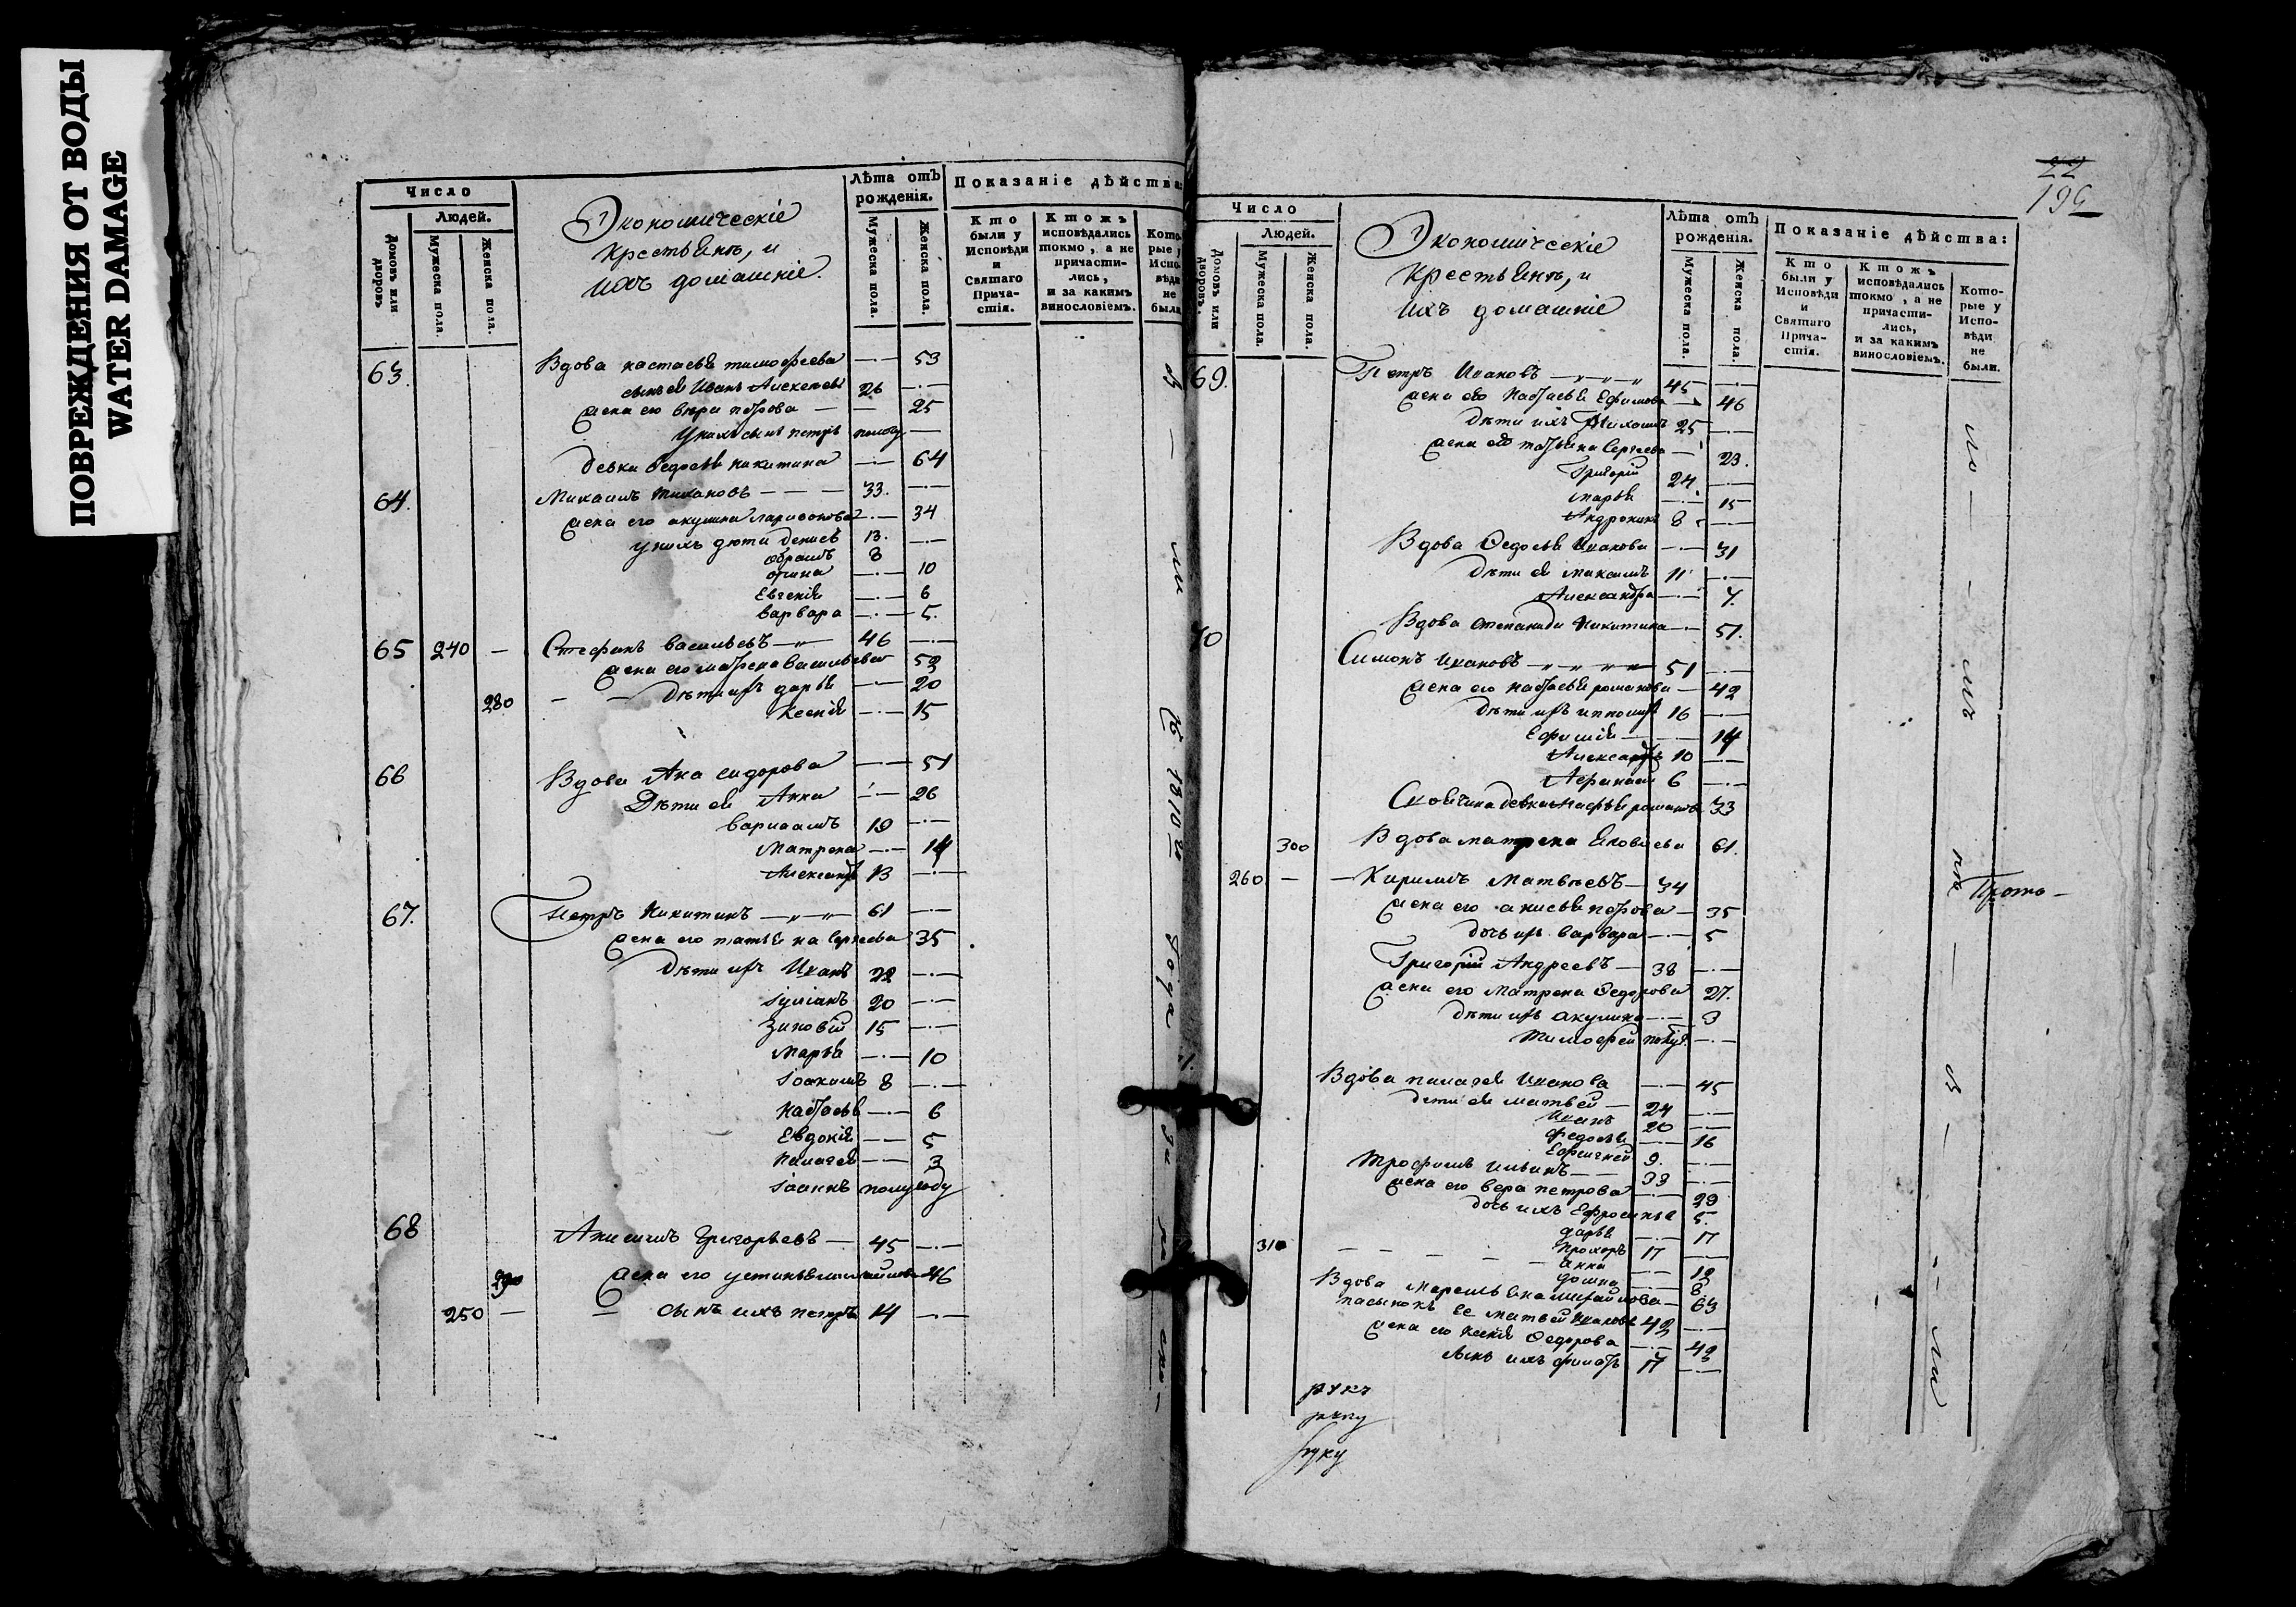 ПОВРЕЖДЕНИЯ ОТ ВОДЫ
WATER DAMAGE
Число
Людей.
Домовъ или дворовъ
Мужеска пола.
Женска пола.
Экономическіе
крестьянѣ, и
ихъ домашніе.
Лѣта отъ рожденія.
Мужеска пола.
Женска пола.
Показаніе дѣйства:
Кто были у Исповѣди и Святаго Прича-стія.
Ктожъ исповѣдались токмо, а не причасти-лись, и за какимъ винословіемъ.
Кото-рые у Испо-вѣди не были
63. Вдова настасья тимофеева — 53
сынъ ея Иванъ Алексеевъ 26 —
жена его вѣра петрова — 25
у нихъ сынъ петръ полго. —
девка Федосья никитина — 64
64. Михаилъ Ивановъ — 33. —
жена его акулина ларионова — 34
у нихъ дѣти денисъ 13. —
абрамъ 8
орина — 10
Евгенія — 6
варвара — 5.
65 240 — Стефанъ васильевъ — 46 —
жена его матрена васильева 52
280 — — дѣти ихъ дарья — 20
Ксенія — 15
66 Вдова Ана сидорова — 51
Дѣти ея Анна — 26
варлаамъ 19 —
Матрена — 14
Александръ 13 —
67. Петръ Никитинъ — 61 —
жена его татьяна сергеева 35
Дѣти ихъ Иванъ 22 —
Іуліанъ 20 —
Зиновій 15 —
Марья — 10
Іоакимъ 8 —
Настасья — 6
Евдокія — 5
Пелагея — 3
Іоаннъ полугоду
68 Анисимъ Григорьевъ — 45 —
290 жена его устинья 46
250 — — сынъ ихъ петръ 14 —
1818 года
22
196
Число
Людей.
Домовъ или дворовъ.
Мужеска пола.
Женска пола.
Экономическіе
крестьянѣ, и
ихъ домашніе
Лѣта отъ рожденія.
Мужеска пола.
Женска пола.
Показаніе дѣйства:
Кто были у Исповѣди и Святаго Прича-стія.
Ктожъ исповѣдались токмо, а не причасти-лись, и за какимъ винословіемъ.
Кото-рые у Испо-вѣди не были.
69. Петръ Ивановъ — 45 —
жена его Настасья Ефимова — 46
Дѣти ихъ 25 —
жена его татьяна Сергеева — 23.
Григорій 24 —
Марья — 15
Андроникъ 8 —
Вдова Федосья Иванова — 31
Дѣти ея Максимъ 11 —
Александра — 7.
Вдова степанида Никитина — 51.
70 Симонъ Ивановъ — 51 —
жена его настасья романова — 42
Дѣти ихъ 16 —
Ефимія — 14
Александръ 10 —
Афанасій 6 —
девка романова 33
300 Вдова матрена Яковлева 61.
260 — — Кирилъ Матвѣевъ — 34
жена его анисья петрова — 35
дочь ихъ варвара — 5
Григорій Андреевъ — 38 —
жена его Матрена Федорова 27.
Дѣти ихъ акулина — 3
Тимофей полуг. —
Вдова пелагея Иванова — 45
дети ея матвей — 24 —
Иванъ 20 —
Федосья — 16
9. —
Трофимъ ильинъ — 39 —
жена его вера петрова — 29
дочь ихъ Ефросинья 5.
дарья — 17
310 — — — — Прохоръ 17 —
Анна — 12
домна — 8
Вдова 63
пасынокъ ее матвей Ивановъ 42 —
жена его Ксенія Федорова — 42
сынъ ихъ филатъ 17 —
Прото-
руку